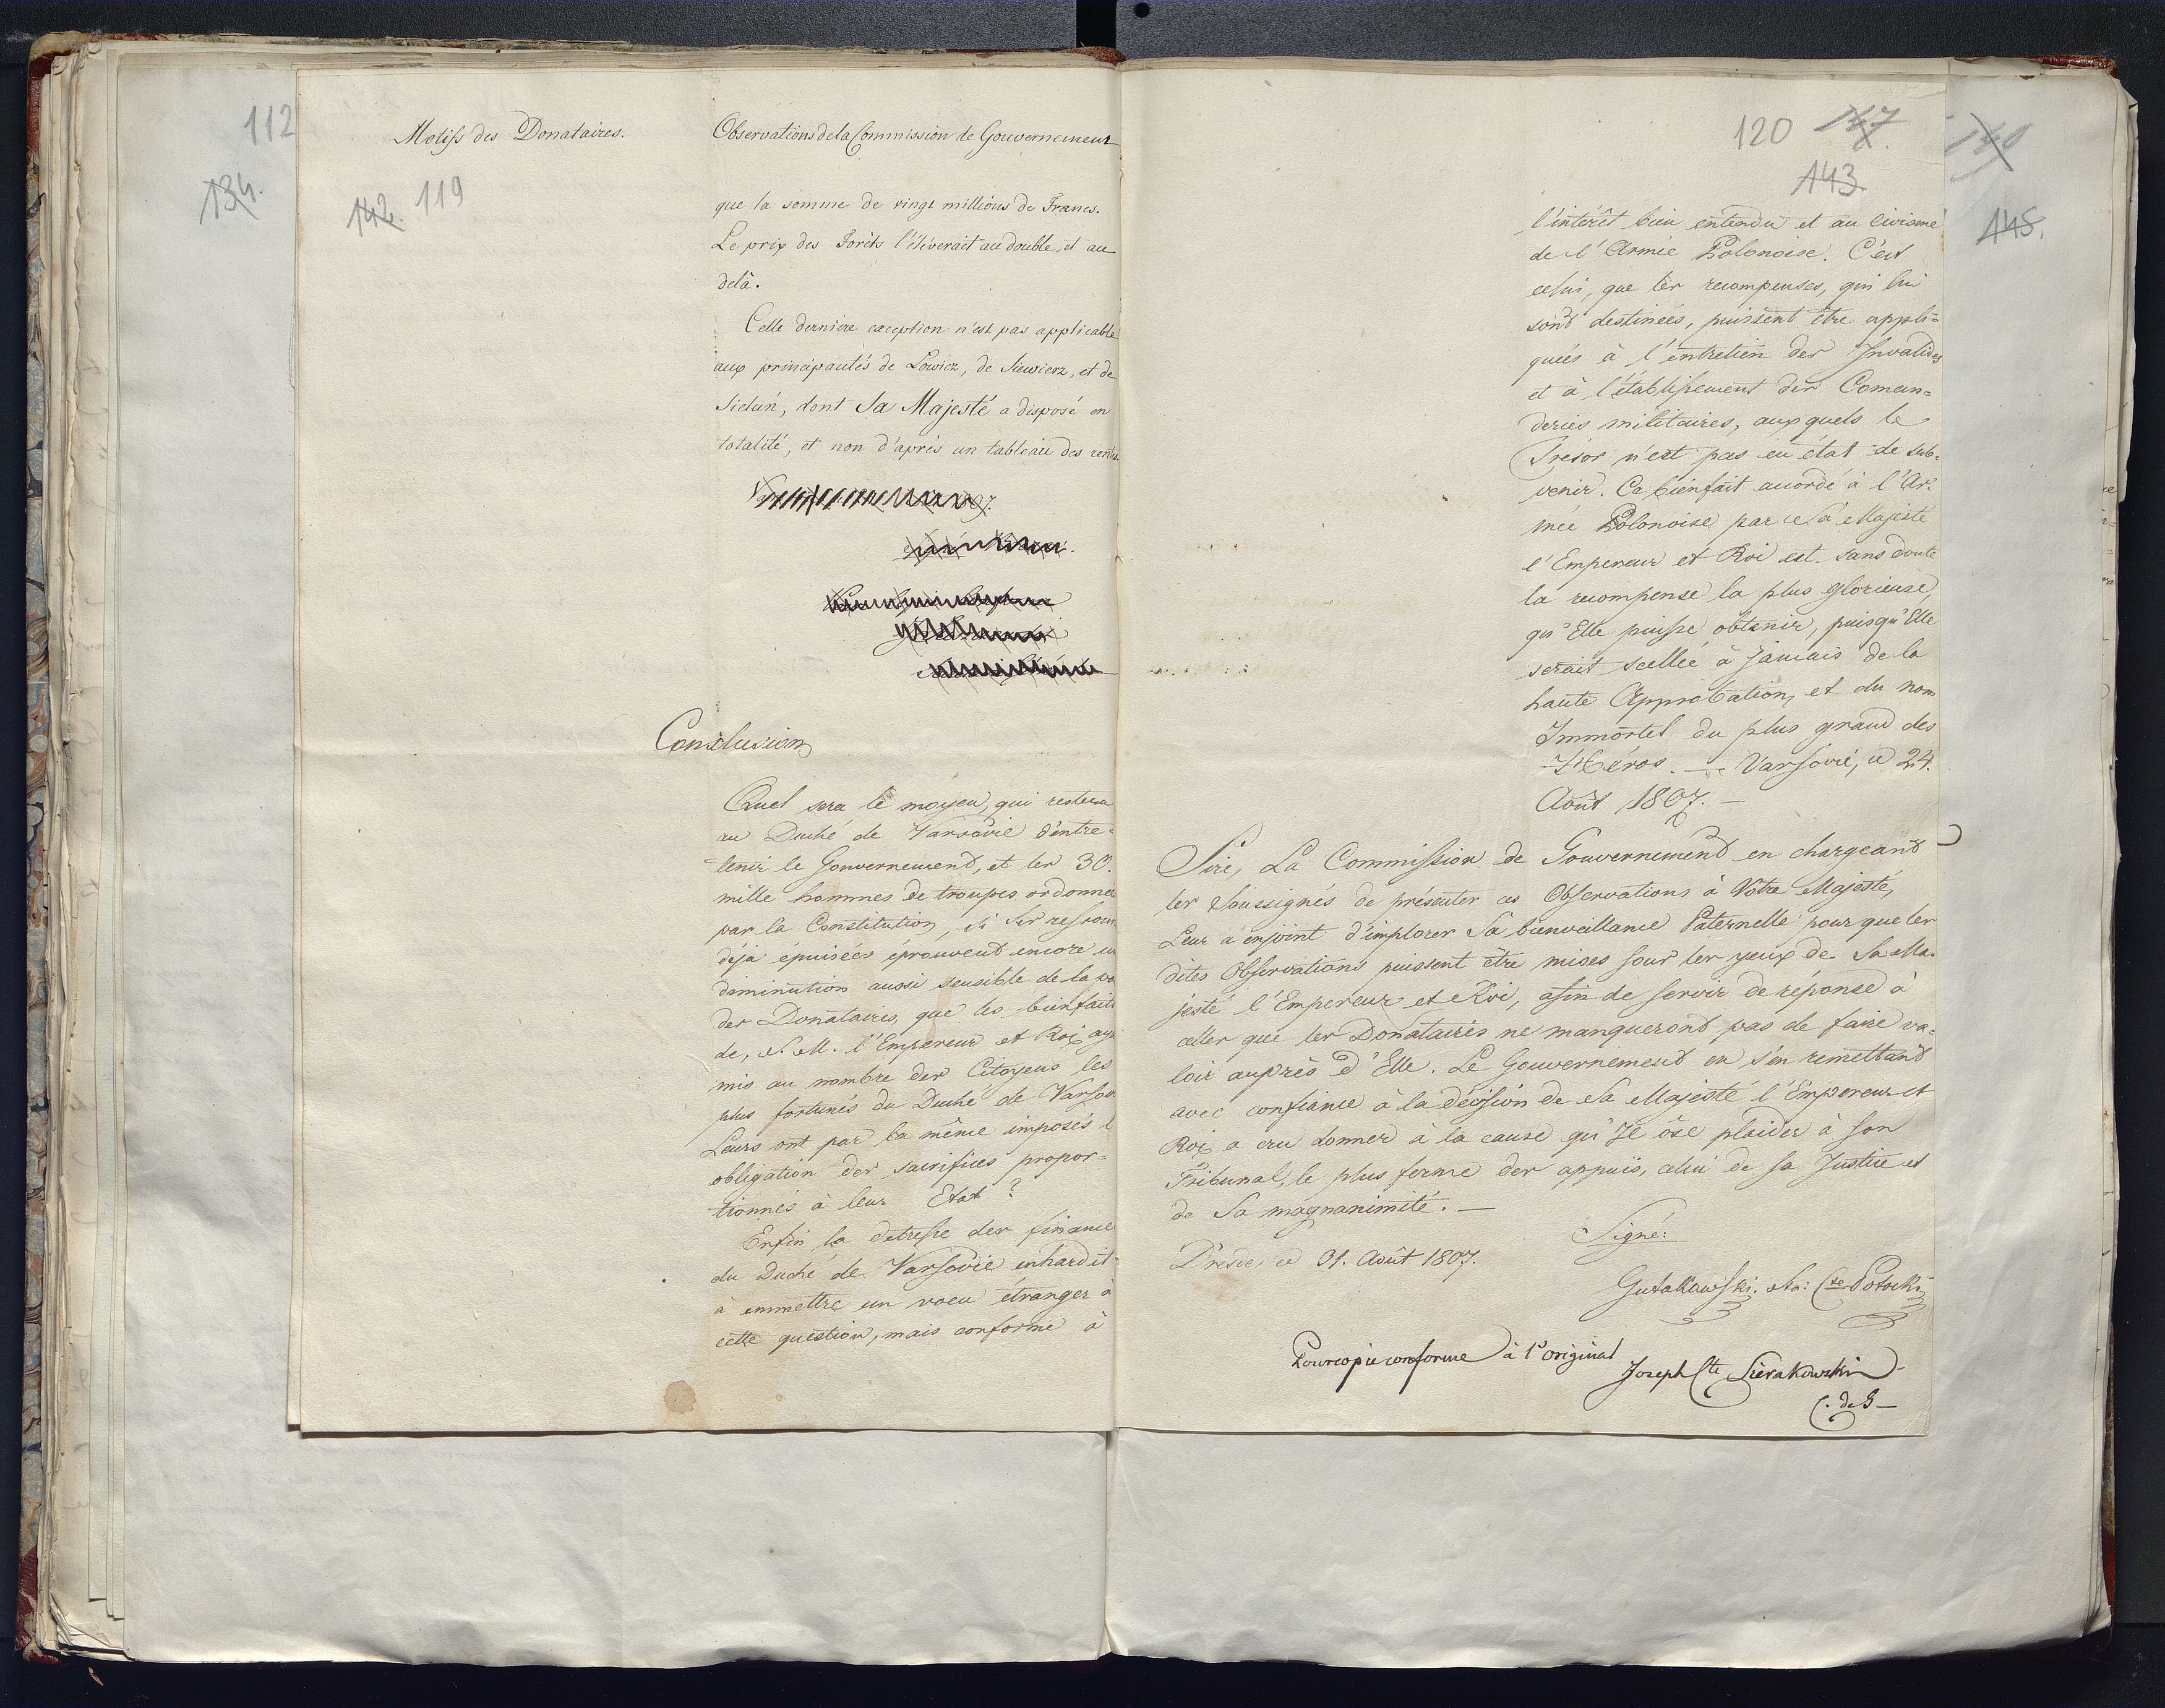 112
134.
Motifs des Donataires.
142. 119
Observations de la Commission de Gouvernement
que la somme de vingt millions de Francs.
Le prix des Forêts l'éléverait au double, et au
delà.
Cette dernière exception n'est pas applicable
aux principautés de Lowicz, de Siewierz, et de
Sieluń, dont Sa Majesté a disposé en
totalité, et non d'après un tableau des rentes.
Conclusion
Quel sera le moyen, qui restera
au Duché de Varsovie d'entre-
tenir le Gouvernement, et les 30.
mille hommes de troupes ordonnés
par la Constitution, si ses ressour
déja épuisées éprouvent encore un
diminution aussi sensible de la pa
des Donataires, que les bienfaits
de, S. M. l'Empereur et Roi, aya
mis au nombre des Citoyens les
plus fortunés du Duché de Varsov
Leurs ont par la même imposés l
obligation des sacrifices propor=
tionnés à leur Etat?
Enfin la detresse des finance
du Duché de Varsovie enhardit
à emmettre un voeu étranger à
cette question, mais conforme à
120 147.
143.
140
145.
l'intérêt bien entendu et au civisme
de l'Armée Polonoise. C'est
celui, que les recompenses, qui lui
sont destinées, puissent être appli=
quées à l'entretien des Invalides
et à l'établissement des Coman=
deries militaires, auxquels le
Trésor n'est pas en état de sub=
venir. Ce bienfait accordé à l'Ar=
mée Polonoise par Sa Majesté
l'Empereur et Roi est sans doute
la recompense la plus glorieuse,
qu'Elle puisse obtenir, puisqu'Elle
serait scellée à jamais de la
haute Approbation, et du nom
Immortel du plus grand des
Héros. — Varsovie, ce 24.
Août 1807. —
Sire, La Commission de Gouvernement en chargeant
les Soussignés de présenter ces Observations à Votre Majesté,
Leur a enjoint d'implorer Sa bienveillance Paternelle pour que les
dites Observations puissent être mises sous les yeux de Sa Ma=
jesté l'Empereur et Roi, afin de servir de réponse à
celles que les Donataires ne manqueront pas de faire va=
loir auprès d'Elle. Le Gouvernement en s'en remettant
avec confiance à la décision de Sa Majesté l'Empereur et
Roi, a cru donner à la cause qu'Il ôse plaider à son
Tribunal, le plus ferme des appuis, celui de sa Justice et
de Sa magnanimité. —
Signé:
Dresde, ce 31. Août 1807.
Gutakowski. Sta: Cte Potocki
Pour copie conforme à l'original
Joseph Cte Sierakowski